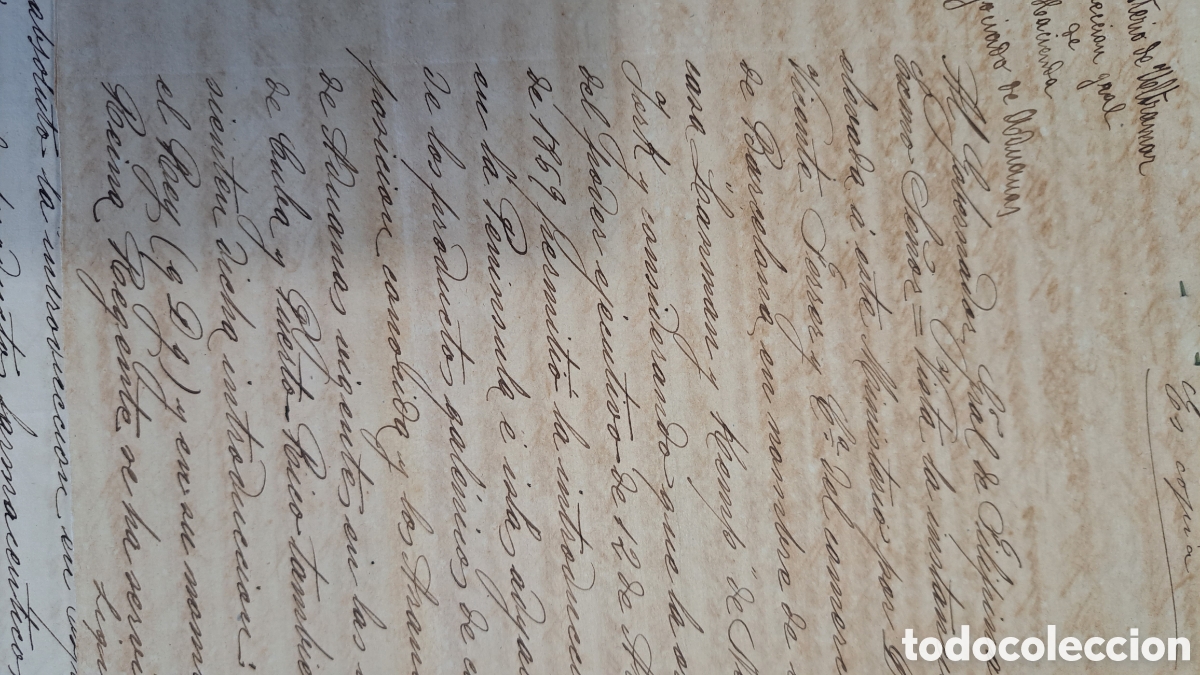 Es copia
terio de Ultramar
ección gral
de
Hacienda
gociado de Aduanas
Al Gobernador Gral de Filipinas
Excmo Señor = Vista la instan
elevada á este Ministerio por
Vicente Ferrer y Cª del comer
de Barcelona en nombre de
casa Lanman y Kemp de
York y considerando que la
del Poder ejecutivo de 12 de
de 1869 permitió la introducc
en la Península é islas adyac
de los productos galénicos de
posicion conocida y los Aran
de Aduanas vigentes en las
de Cuba y Puerto-Rico tambie
sienten dicha introduccion;
el Rey (q D g) y en su nom
Reina Regente se ha servi
absoluto la introduccion en
productos farmaceuticos
todocoleccion